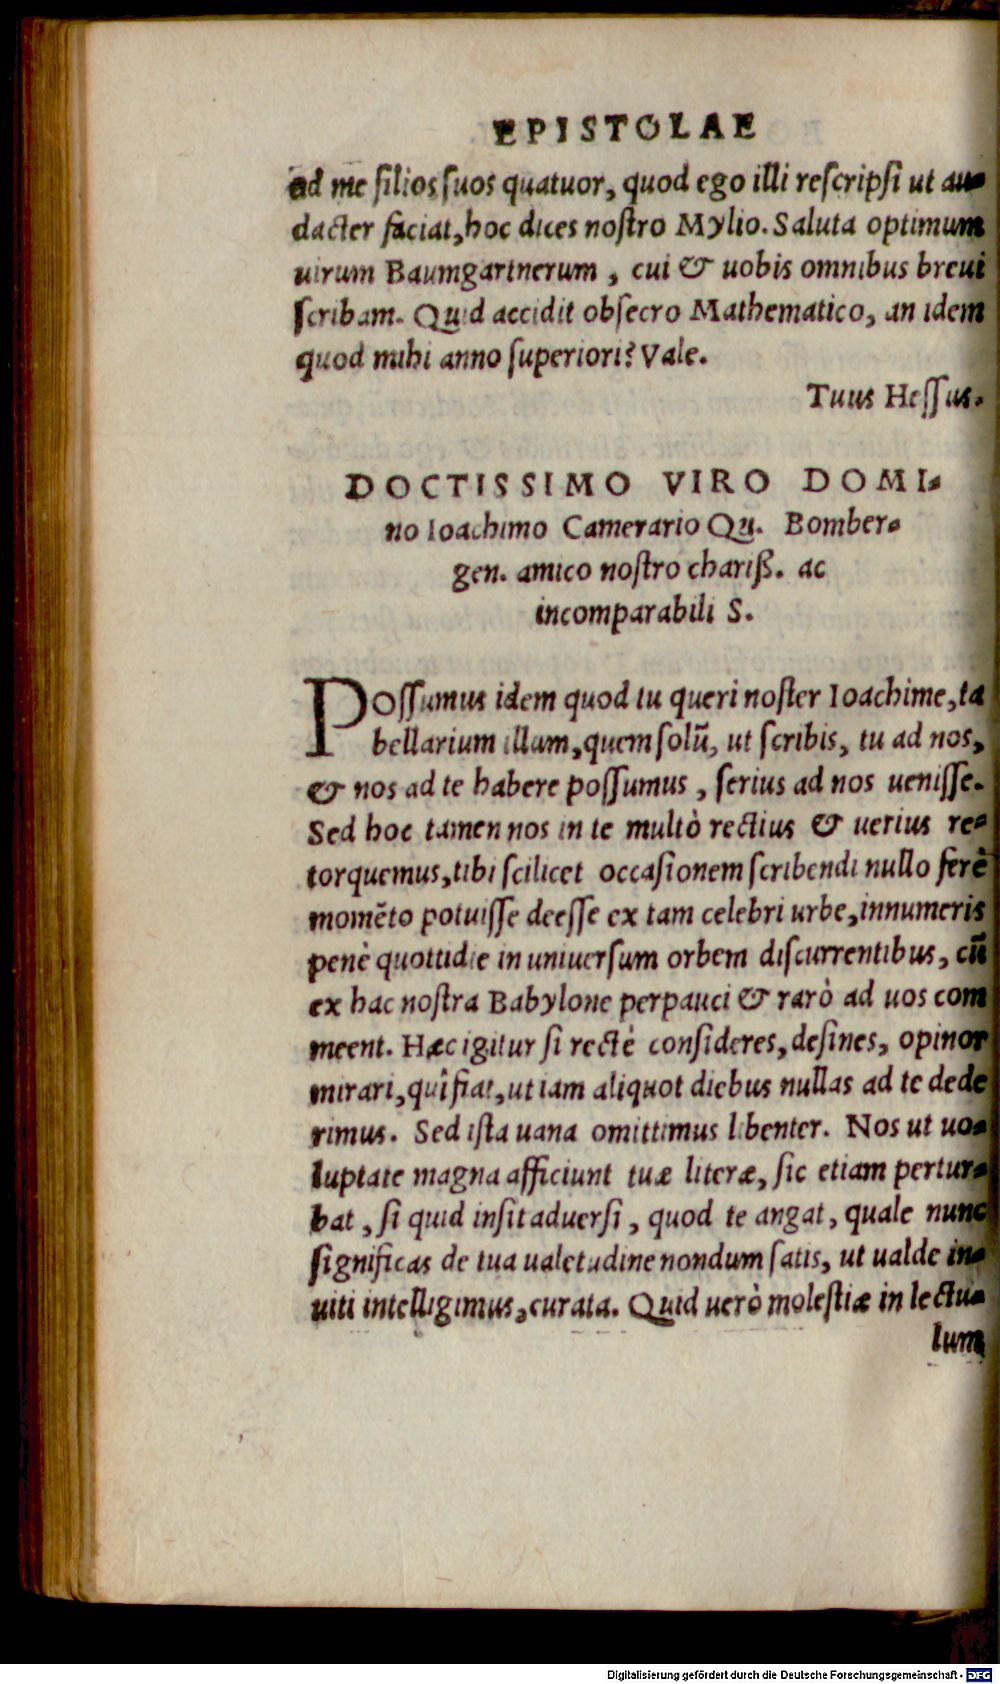 EPISTOLAE
ad me filios suos quatuor, quod ego illi rescripsi ut au-
dacter faciat, hoc dices nostro Mylio. Saluta optimum
uirum Baumgartnerum, cui & uobis omnibus breui
scribam. Quid accidit obsecro Mathematico, an idem
quod mihi anno superiori? Vale.
Tuus Hessus.
DOCTISSIMO VIRO DOMI-
no Ioachimo Camerario Qu. Bomber-
gen. amico nostro chariß. ac
incomparabili S.
Possumus idem quod tu queri noster Ioachime, ta
bellarium illum, quem solũ, ut scribis, tu ad nos,
& nos ad te habere possumus, serius ad nos uenisse.
Sed hoc tamen nos in te multò rectius & uerius re-
torquemus, tibi scilicet occasionem scribendi nullo ferè
momẽto potuisse deesse ex tam celebri urbe, innumeris
penè quotidie in uniuersum orbem discurrentibus, cũ
ex hac nostra Babylone perpauci & rarò ad uos com
meent. Hæc igitur si rectè consideres, desines, opinor
mirari, quî fiat, ut iam aliquot diebus nullas ad te dede
rimus. Sed ista uana omittimus libenter. Nos ut uo-
luptate magna afficiunt tuæ literæ, sic etiam pertur-
bat, si quid insit aduersi, quod te angat, quale nunc
significas de tua ualetudine nondum satis, ut ualde in-
uiti intelligimus, curata. Quid uerò molestiæ in lectu-
lum
Digitalisierung gefördert durch die Deutsche Forschungsgemeinschaft - DFG